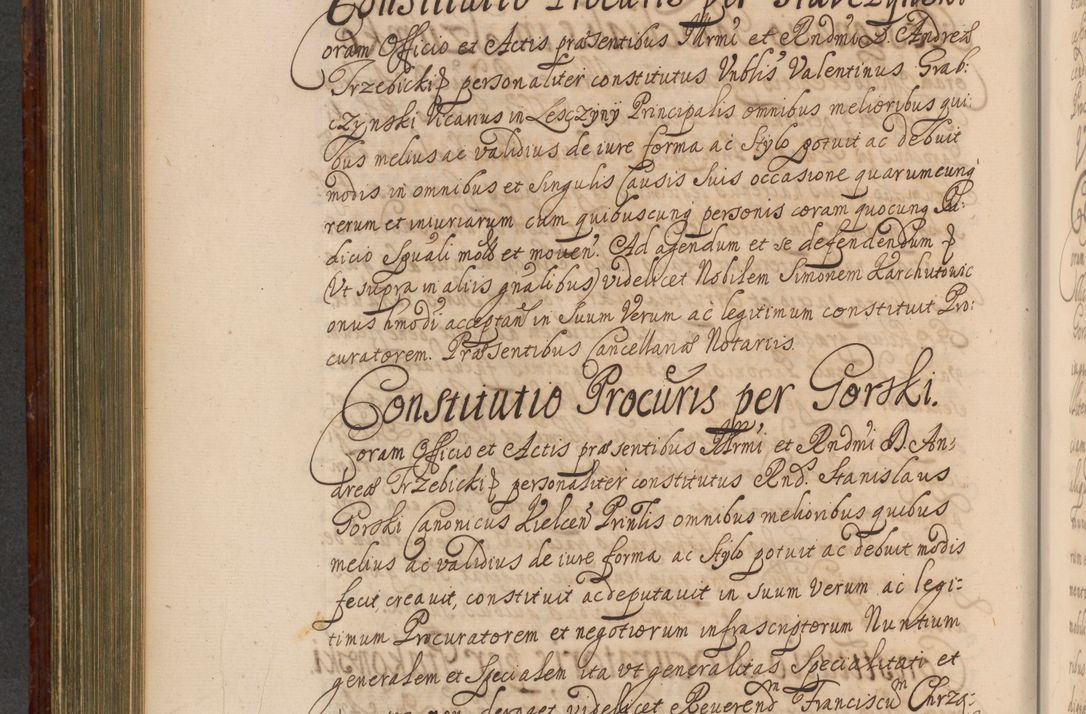 Constitutio Procuris per
oram Officio et Actis præsentibus Illrmi et Rndmi D. Andreæ
Trzebicki p personaliter constitutus Vnblis Valentinus Grab:
czynski Vicarius in Lesczyny Principalis omnibus melioribus qui:
bus melius ac validius de iure forma ac Stylo potuit ac debuit
modis in omnibus et Singulis Causis Suis occasione quarumcunq
rerum et iniuriarum cum quibuscunq personis coram quocunq Iu:
dicio Sptuali motis et moven. Ad agendum et se defendendum p
(Vt supra in aliis gnalibus) videlicet Nobilem Simonem Karchutowic
onus hmodi acceptan in Suum Verum ac legitimum constituit Pro:
curatorem. Præsentibus Cancellariæ Notariis
Constitutio Procuris per Gorski.
Coram Officio et Actis præsentibus Illrmi et Rndmi D. An:
dreæ Trzebicki p personaliter constitutus Rnd. Stanislaus
Gorski Canonicus Kielcen Prinlis omnibus melioribus quibus
melius ac validius de iure forma ac Stylo potuit ac debuit modis
fecit creauit, constituit ac deputauit in Suum Verum ac legi:
timum Procuratorem et negotiorum infrascriptorum Nuntium
generalem et Specialem ita vt generalitas Specialitati et
non derogaet videlicet Reverend Franciscum Chrzą: